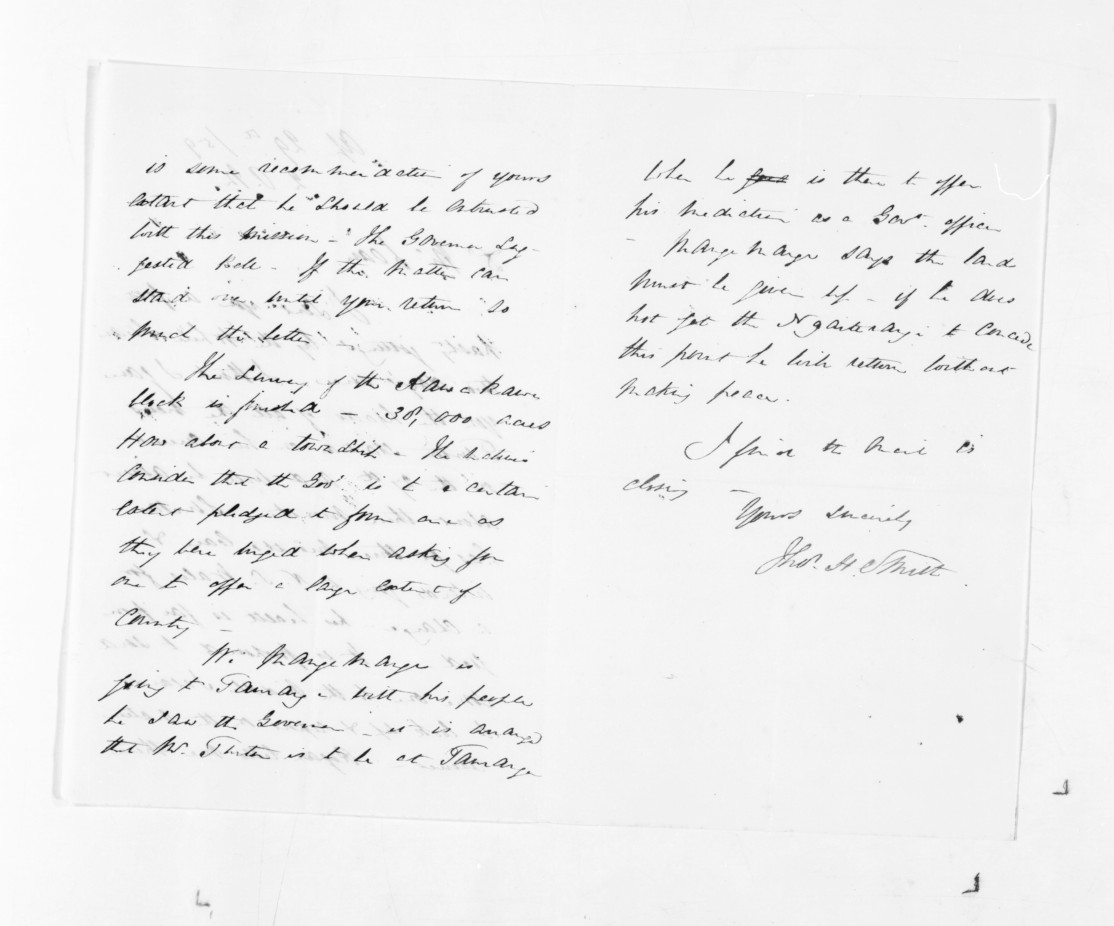 is some recommendation of yours
extant that he should be entrusted
with this mission - The Governor sug-
gested Bell - If the matter can
stand over until your return so
much the better
The Survey of the
block is finished - 38,000 acres
How about a township - The natives
consider that the Govt. is to a certain
extent pledged to form one as
they were urged when asking for
one to offer a large extent of
Country -
Wi Mangemange is
going to Tauranga with his people
he saw the Governor - it is arranged
that Mr. Turton is to be at Tauranga
when he goes is there to offer
his mediation as a Govt. officer
- Mangemange says the land
must be given up - if he does
not get the Ngaiterangi to concede
this point he will return without
making peace.
I find the mail is
closing -
Yours sincerely
Thos. H. Smith